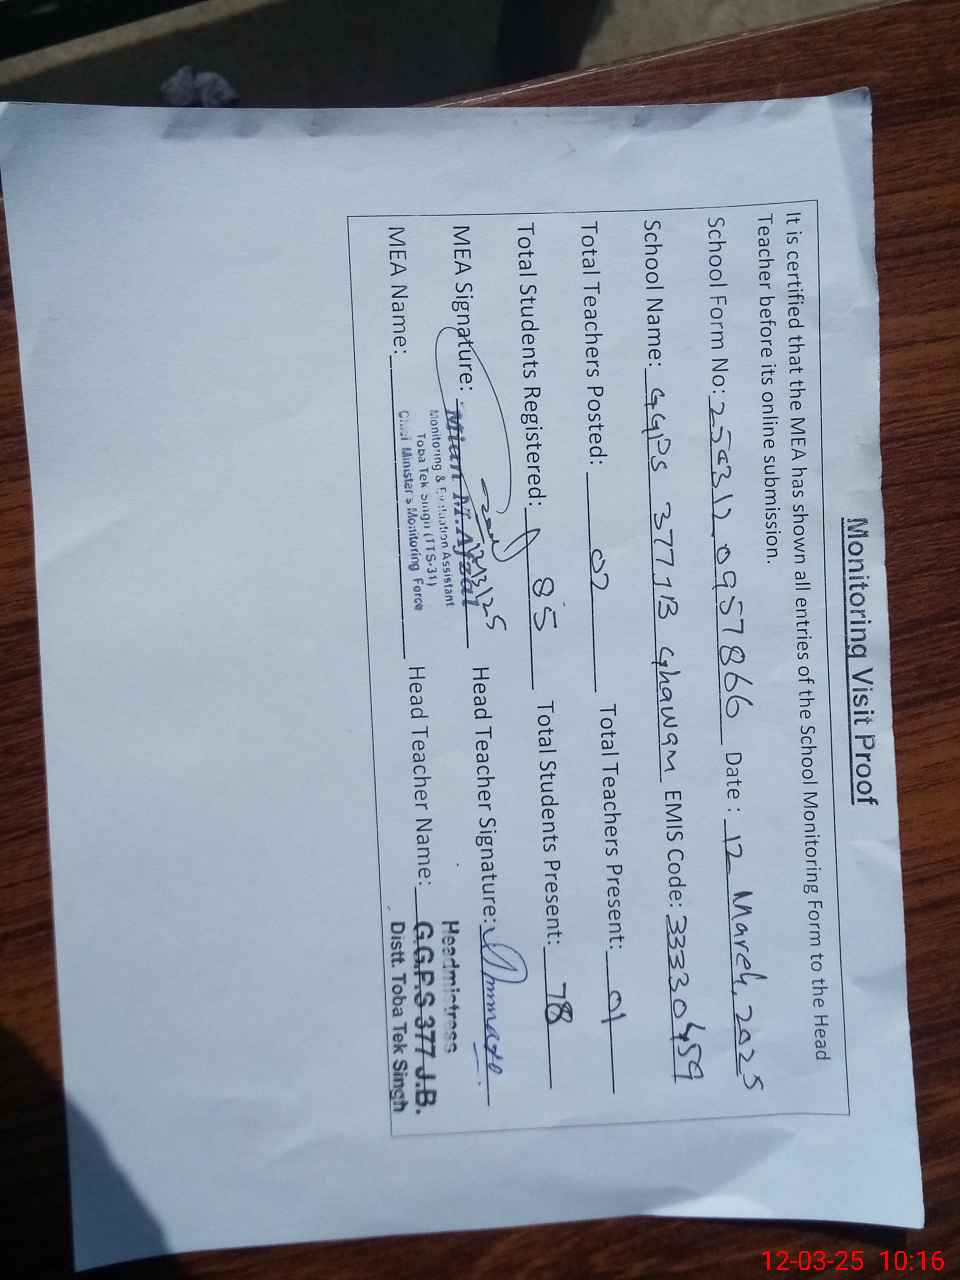 Monitoring Visit Proof
It is certified that the MEA has shown all entries of the School Monitoring Form to the Head
Teacher before its online submission.
School Form No: 2503120957866 Date : 12 March, 2025
School Name: GGPS 377 JB Ghawam EMIS Code: 33330459
Total Teachers Posted: 02 Total Teachers Present: 01
Total Students Registered: 85 Total Students Present: 78
MEA Signature: Head Teacher Signature:
12/3/25
Mian M. Afzal
Monitoring & Evaluation Assistant
Toba Tek Singh (TTS-31)
Chief Minister's Monitoring Force
MEA Name: Head Teacher Name:
Headmistress
G.G.P.S 377 J.B.
Distt. Toba Tek Singh
12-03-25 10:16